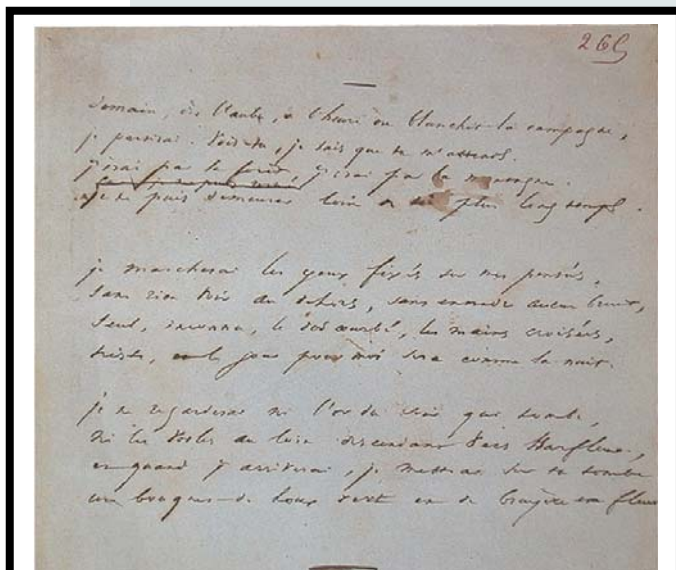 265
demain, dès l'aube, à l'heure où blanchit la campagne,
je partirai. Vois-tu, je sais que tu m'attends.
j'irai par la forêt, j'irai par la montagne.
je ne puis
je ne puis demeurer loin de toi plus longtemps.
je marcherai les yeux fixés sur mes pensées,
sans rien voir au dehors, sans entendre aucun bruit,
seul, inconnu, le dos courbé, les mains croisées,
triste, et le jour pour moi sera comme la nuit.
je ne regarderai ni l'or du soir qui tombe,
ni les voiles au loin descendant vers Harfleur,
et quand j'arriverai, je mettrai sur ta tombe
un bouquet de houx vert et de bruyère en fleur